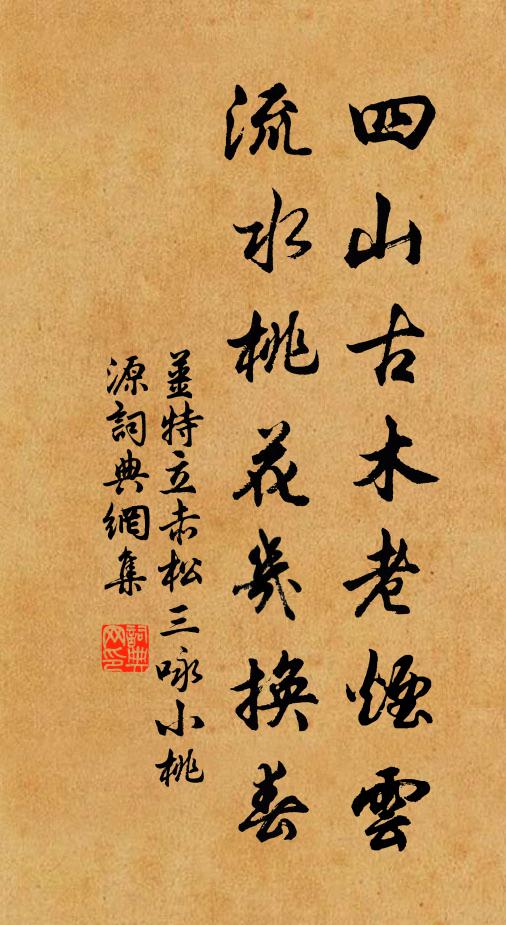 四山古木老煙雲
流水桃花幾換春
薑特立赤松三咏小桃
源詞典網集
詞典网印